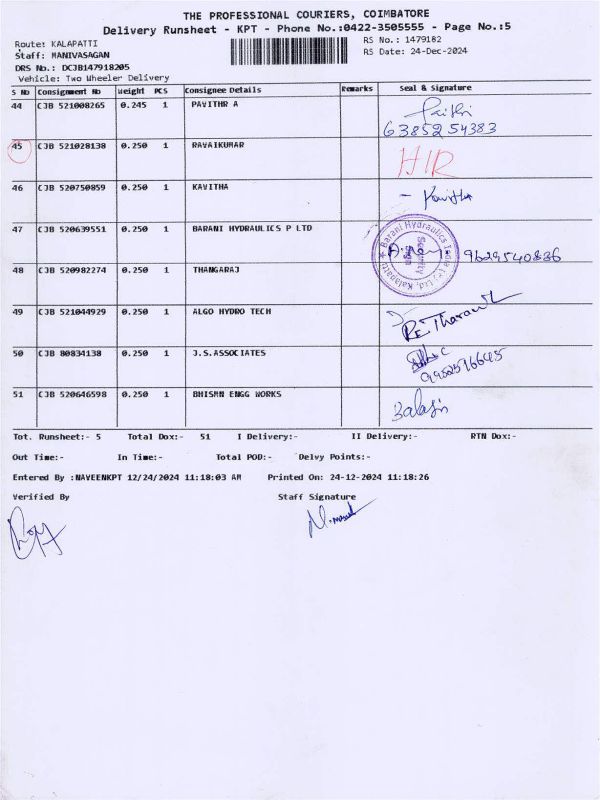 THE PROFESSIONAL COURIERS, COIMBATORE
Delivery Runsheet - KPT - Phone No.:0422-3505555 - Page No.:5
Route: KALAPATTI RS No.: 1479182
Staff: MANIVASAGAN RS Date: 24-Dec-2024
DRS No.: DCJB147918205
Vehicle: Two Wheeler Delivery
S No Consignment No Weight PCS Consignee Details Remarks Seal & Signature
44 CJB 521008265 0.245 1 PAVITHR A
63852 54383
45 CJB 521028138 0.250 1 RAVAIKUMAR H/R
46 CJB 520750859 0.250 1 KAVITHA - Kavitha
47 CJB 520639551 0.250 1 BARANI HYDRAULICS P LTD
Barani Hydraulics
Security
Sign
9629540836
48 CJB 520982274 0.250 1 THANGARAJ
49 CJB 521044929 0.250 1 ALGO HYDRO TECH
50 CJB 80834138 0.250 1 J.S.ASSOCIATES
9952596645
51 CJB 520646598 0.250 1 BHISMN ENGG WORKS Balaji
Tot. Runsheet:- 5 Total Dox:- 51 I Delivery:- II Delivery:- RTN Dox:-
Out Time:- In Time:- Total POD:- Delvy Points:-
Entered By :NAVEENKPT 12/24/2024 11:18:03 AM Printed On: 24-12-2024 11:18:26
Verified By Staff Signature